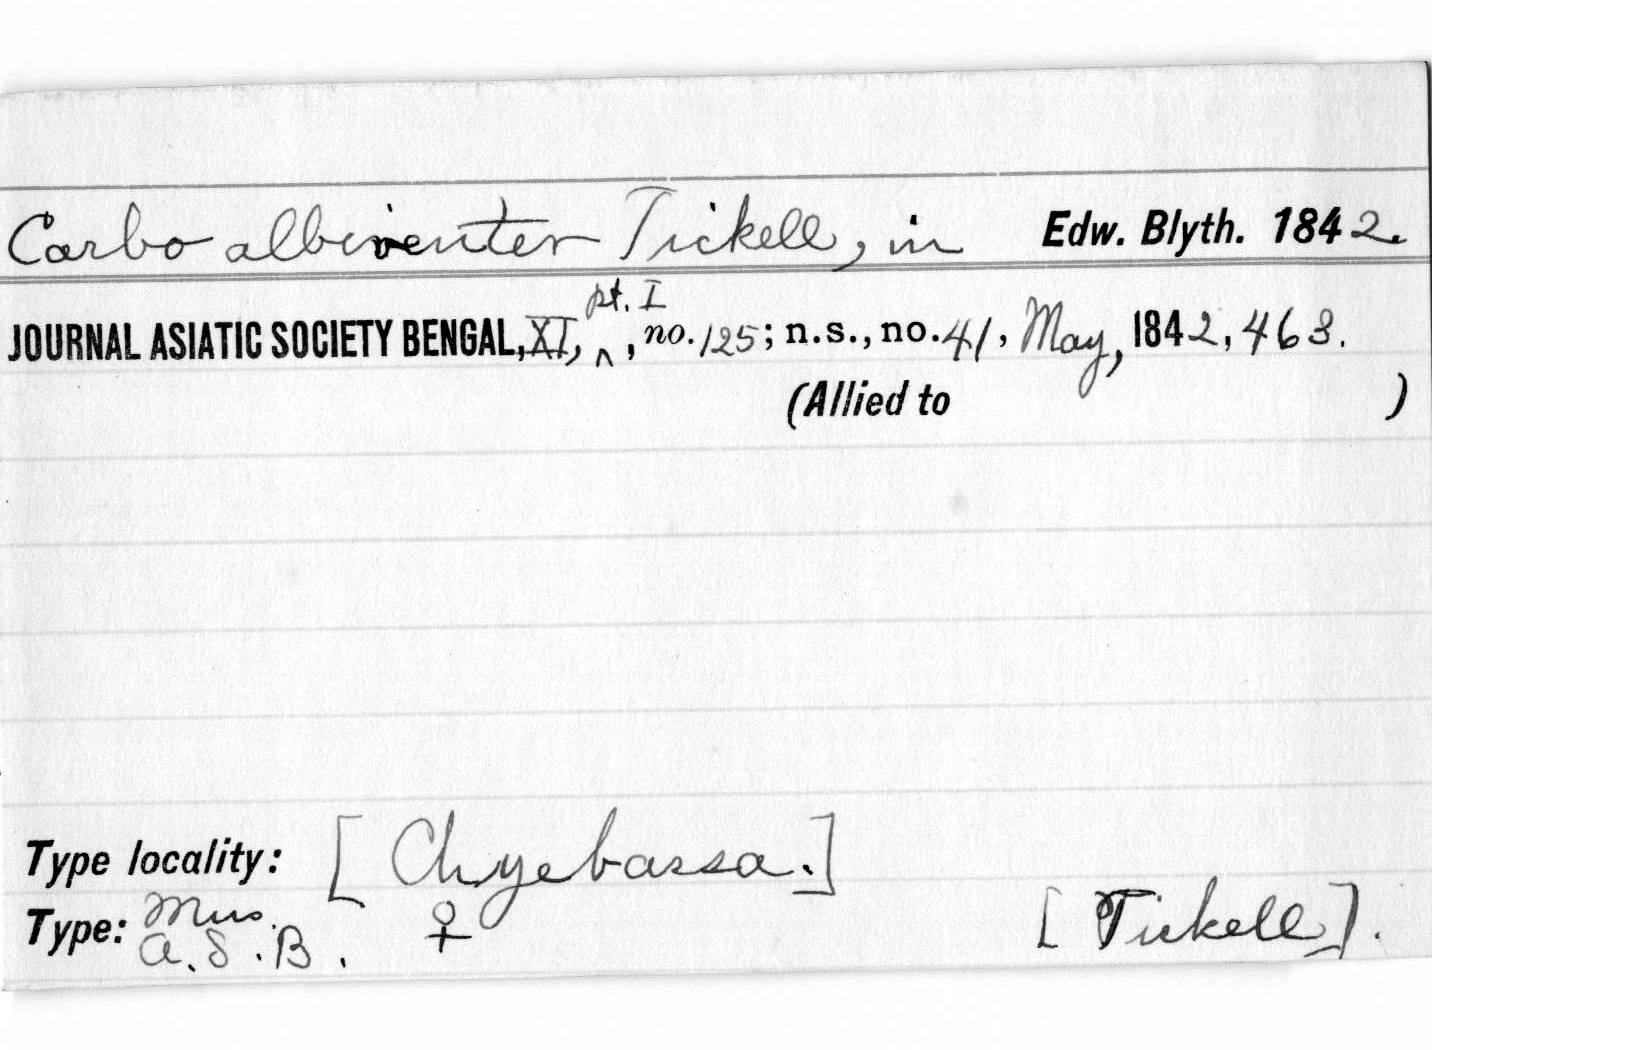 Carbo albiventer Tickell, in Edw. Blyth. 1842.
pt. I
JOURNAL ASIATIC SOCIETY BENGAL, XI, ^, no. 125; n.s., no. 41, May, 1842, 463.
(Allied to )
Type locality: [Chyebassa.]
Type: Mus. A.S.B. ♀ [Tickell].